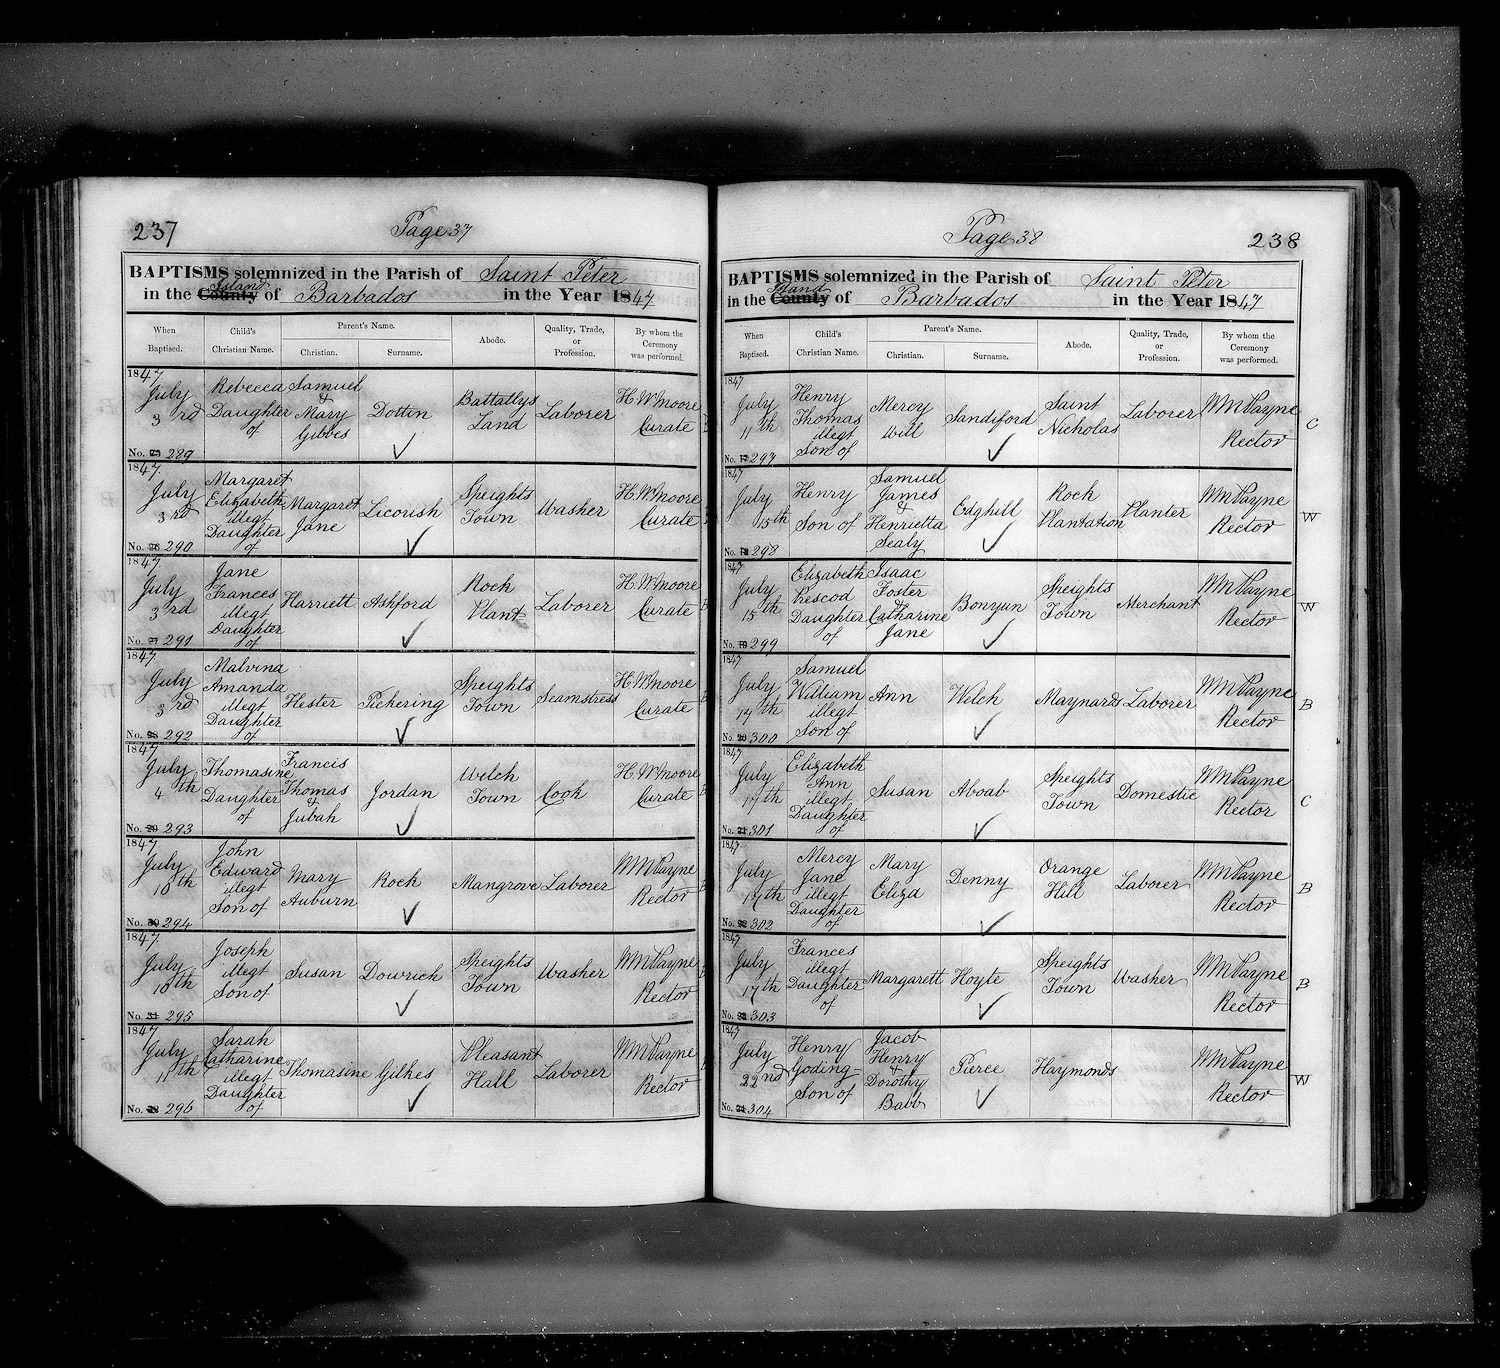 237
Page 37
BAPTISMS solemnized in the Parish of Saint Peter
Island
in the County of Barbados in the Year 1847
When Baptised.
Child's Christian Name.
Parent's Name.
Christian.
Surname.
Abode.
Quality, Trade, or Profession.
By whom the Ceremony was performed.
1847
July 3rd
No. 289
Rebecca Daughter of
Samuel & Mary Gibbes
Dottin
Battallys Land
Laborer
H. W. Moore Curate
1847
July 3rd
No. 290
Margaret Elizabeth illegt Daughter of
Margaret Jane
Licorish
Speights Town
Washer
H. W. Moore Curate
1847
July 3rd
No. 291
Jane Frances illegt Daughter of
Harriett
Ashford
Rock Plant
Laborer
H. W. Moore Curate
1847
July 3rd
No. 292
Malvina Amanda illegt Daughter of
Hester
Pickering
Speights Town
Seamstress
H. W. Moore Curate
1847
July 4th
No. 293
Thomasine Daughter of
Francis Thomas & Jubah
Jordan
Welch Town
Cook
H. W. Moore Curate
1847
July 10th
No. 294
John Edward illegt Son of
Mary Auburn
Rock
Mangrove
Laborer
WM Payne Rector
1847
July 10th
No. 295
Joseph illegt Son of
Susan
Dowrich
Speights Town
Washer
WM Payne Rector
1847
July 11th
No. 296
Sarah Catharine illegt Daughter of
Thomasine
Gilkes
Pleasant Hall
Laborer
WM Payne Rector
Page 38
238
BAPTISMS solemnized in the Parish of Saint Peter
Island
in the County of Barbados in the Year 1847
When Baptised.
Child's Christian Name.
Parent's Name.
Christian.
Surname.
Abode.
Quality, Trade, or Profession.
By whom the Ceremony was performed.
1847
July 11th
No. 297
Henry Thomas illegt Son of
Mercy Will
Sandiford
Saint Nicholas
Laborer
WM Payne Rector
C
1847
July 15th
No. 298
Henry Son of
Samuel James & Henrietta Sealy
Edghill
Rock Plantation
Planter
WM Payne Rector
W
1847
July 15th
No. 299
Elizabeth Prescod Daughter of
Isaac Foster & Catharine Jane
Bonyun
Speights Town
Merchant
WM Payne Rector
W
1847
July 17th
No. 300
Samuel William illegt Son of
Ann
Welch
Maynards
Laborer
WM Payne Rector
B
1847
July 17th
No. 301
Elizabeth Ann illegt Daughter of
Susan
Aboab
Speights Town
Domestic
WM Payne Rector
C
1847
July 17th
No. 302
Mercy Jane illegt Daughter of
Mary Eliza
Denny
Orange Hill
Laborer
WM Payne Rector
B
1847
July 17th
No. 303
Frances illegt Daughter of
Margarett
Hoyte
Speights Town
Washer
WM Payne Rector
B
1847
July 22nd
No. 304
Henry Goding Son of
Jacob Henry & Dorothy Babb
Pierce
Haymonds
WM Payne Rector
W